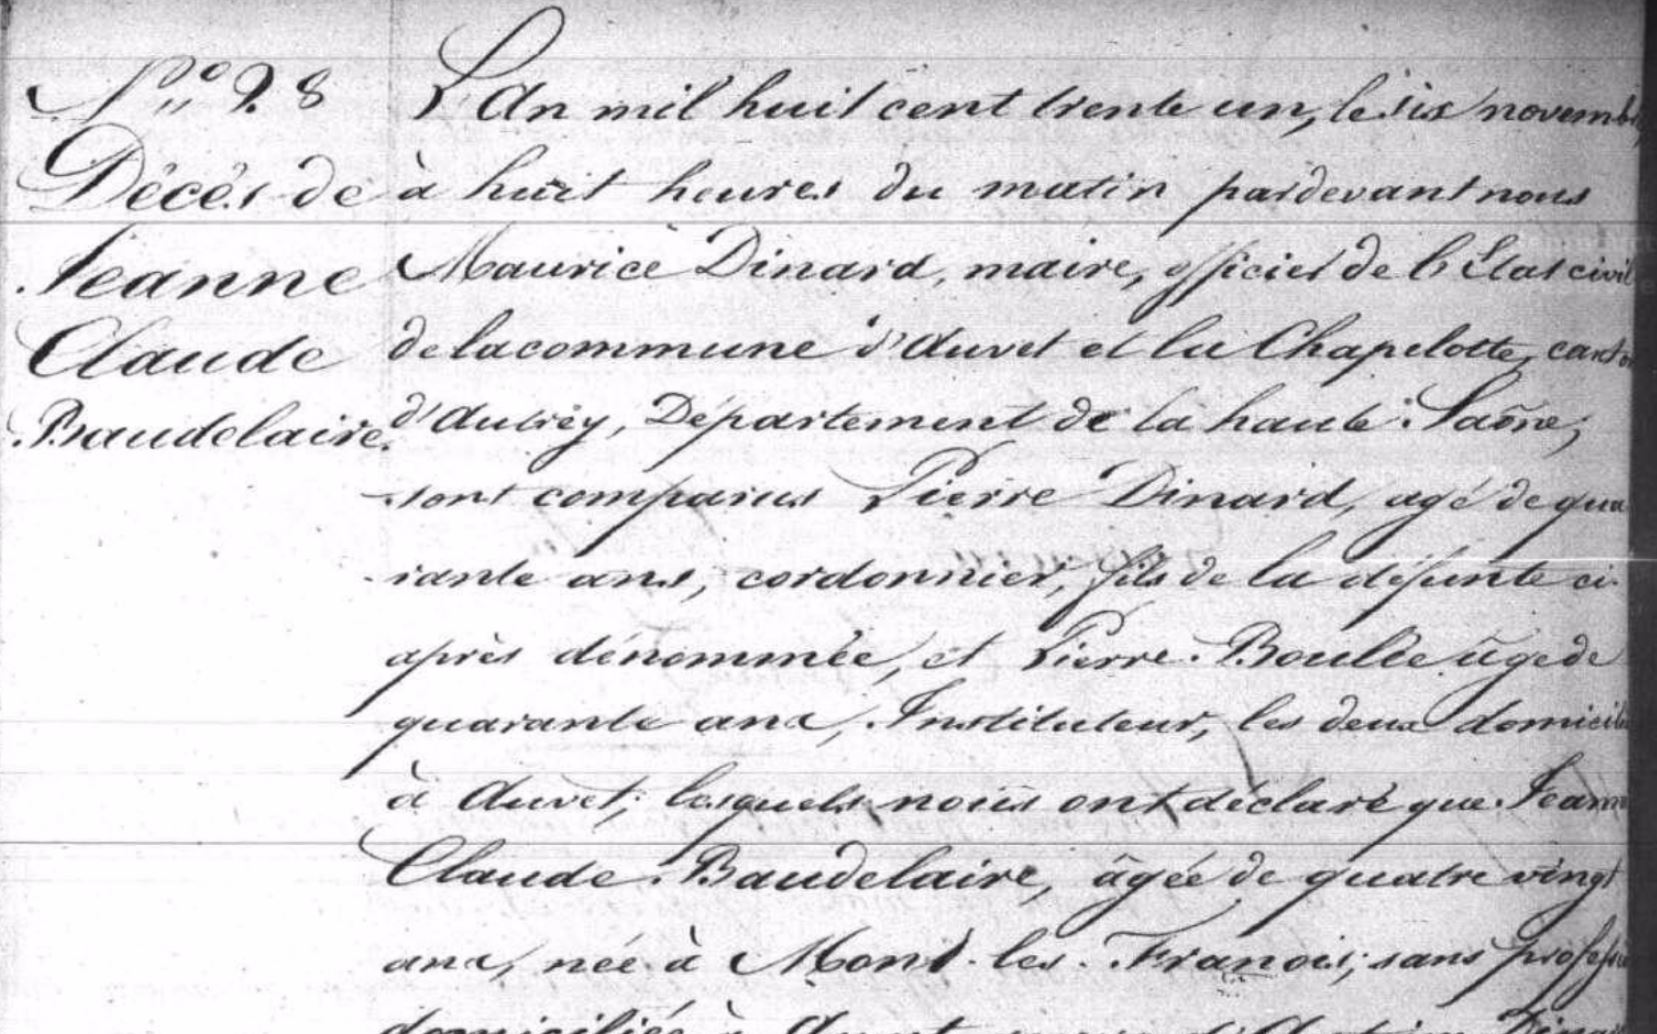 N.° 28
Décès de
Jeanne
Claude
Baudelaire.
L'An mil huit cent trente un, le six novemb
à huit heures du matin pardevant nous
Maurice Dinard, maire, officier de l'Etat civil
de la commune d'Auvet et la Chapelotte, canton
d'Autrey, Département de la haute Saône,
sont comparus Pierre Dinard, agé de qua
rante ans, cordonnier, fils de la défunte ci-
après dénommée, et Pierre Boulle âgé de
quarante ans, Instituteur, les deux domicilié
à Auvet; lesquels nous ont déclaré que Jeann
Claude Baudelaire, âgée de quatre vingt
ans, née à Mont-les-Franois; sans professi
domiciliée à Auvet